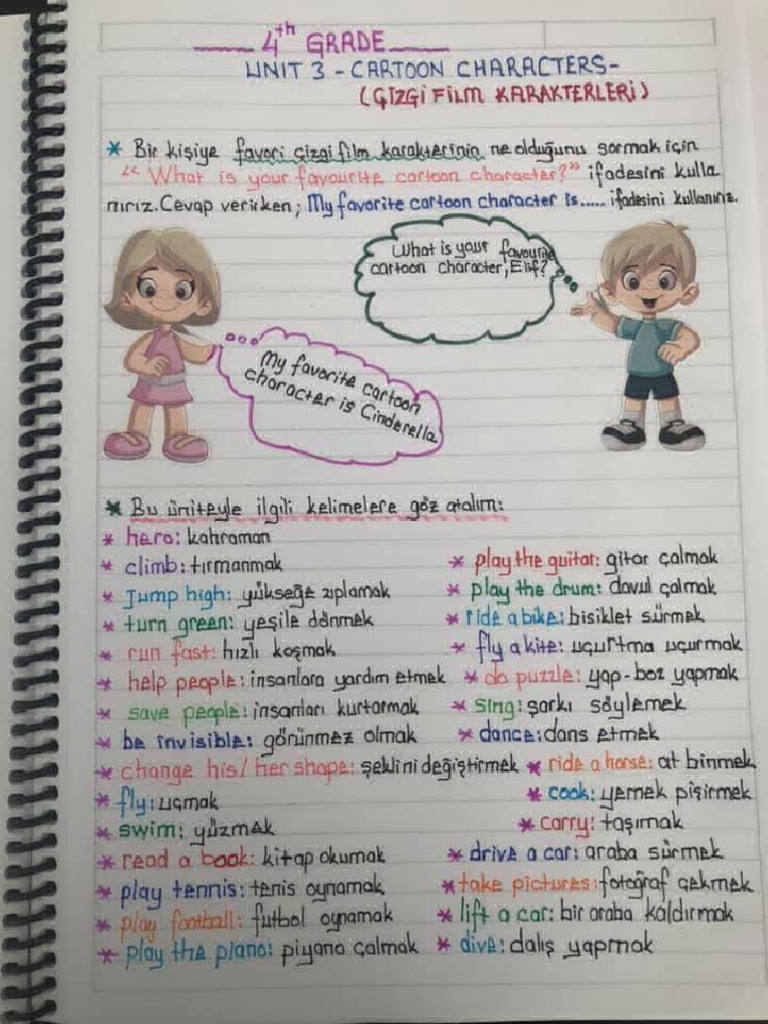 4th GRADE
UNIT 3 - CARTOON CHARACTERS-
(ÇİZGİ FİLM KARAKTERLERİ)
* Bir kişiye favori çizgi film karakterinin ne olduğunu sormak için
"What is your favourite cartoon character?" ifadesini kulla
nırız. Cevap verirken; My favorite cartoon character is..... ifadesini kullanırız.
What is your favourite
cartoon character, Elif?
My favorite cartoon
character is Cinderella
* Bu üniteyle ilgili kelimelere göz atalım:
* hero: kahraman
* climb: tırmanmak
* Jump high: yükseğe zıplamak
* turn green: yeşile dönmek
* run fast: hızlı koşmak
* help people: insanlara yardım etmek
* save people: insanları kurtarmak
* be invisible: görünmez olmak
* change his/her shape: şeklini değiştirmek
* fly: uçmak
* swim: yüzmek
* read a book: kitap okumak
* play tennis: tenis oynamak
* play football: futbol oynamak
* play the piano: piyano çalmak
* play the guitar: gitar çalmak
* play the drum: davul çalmak
* ride a bike: bisiklet sürmek
* fly a kite: uçurtma uçurmak
* do puzzle: yap-boz yapmak
* sing: şarkı söylemek
* dance: dans etmek
* ride a horse: at binmek
* cook: yemek pişirmek
* carry: taşımak
* drive a car: araba sürmek
* take pictures: fotoğraf çekmek
* lift a car: bir araba kaldırmak
* dive: dalış yapmak